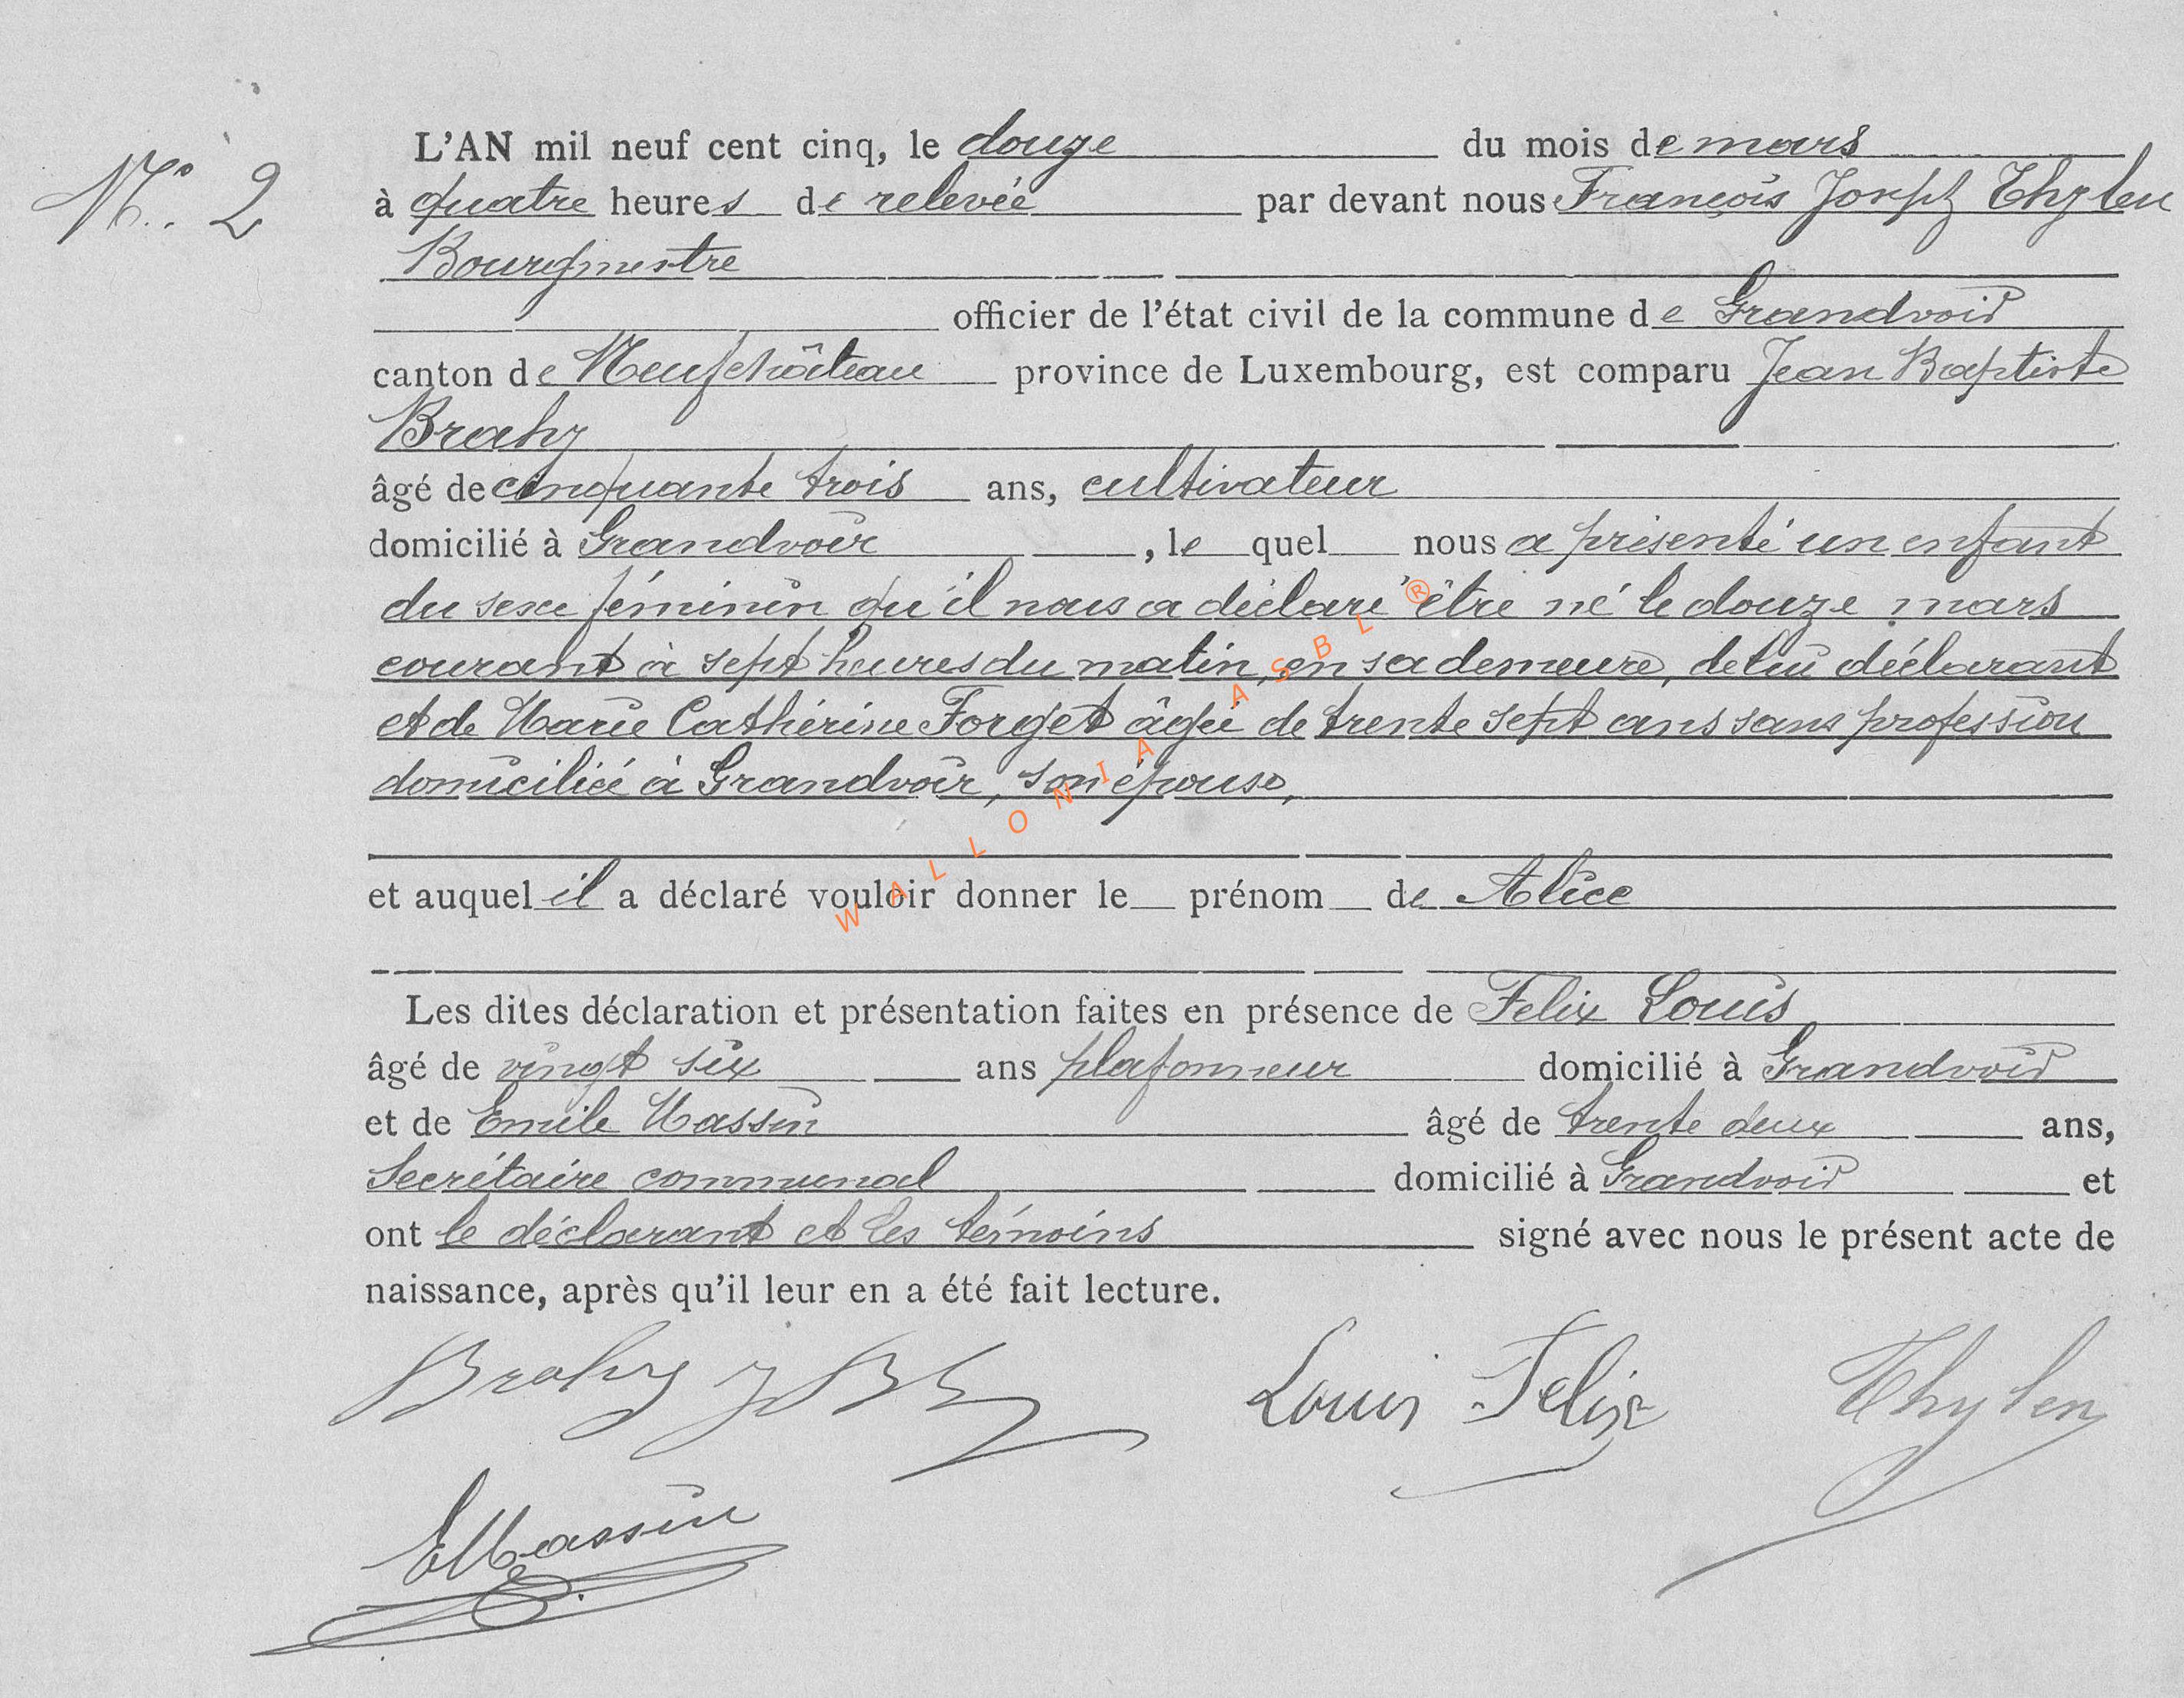 N°. 2
L'AN mil neuf cent cinq, le douze du mois de mars
à quatre heures de relevée par devant nous François Joseph Thylen
Bourgmestre
officier de l'état civil de la commune de Grandvoir
canton de Neufchâteau province de Luxembourg, est comparu Jean Baptiste
Brahy
âgé de cinquante trois ans, cultivateur
domicilié à Grandvoir, le quel nous a présenté un enfant
du sexe féminin qu'il nous a déclaré être né le douze mars
courant à sept heures du matin, en sa demeure, de lui déclarant
et de Marie Cathérine Forget âgée de trente sept ans sans profession
domiciliée à Grandvoir, son épouse,
et auquel il a déclaré vouloir donner le prénom de Alice
Les dites déclaration et présentation faites en présence de Felix Louis
âgé de vingt six ans plafonneur domicilié à Grandvoir
et de Emile Massin âgé de trente deux ans,
Secrétaire communal domicilié à Grandvoir et
ont le déclarant et les témoins signé avec nous le présent acte de
naissance, après qu'il leur en a été fait lecture.
Brahy JB Louis Felix Thylen
EMassin
WALLONIA ASBL ®